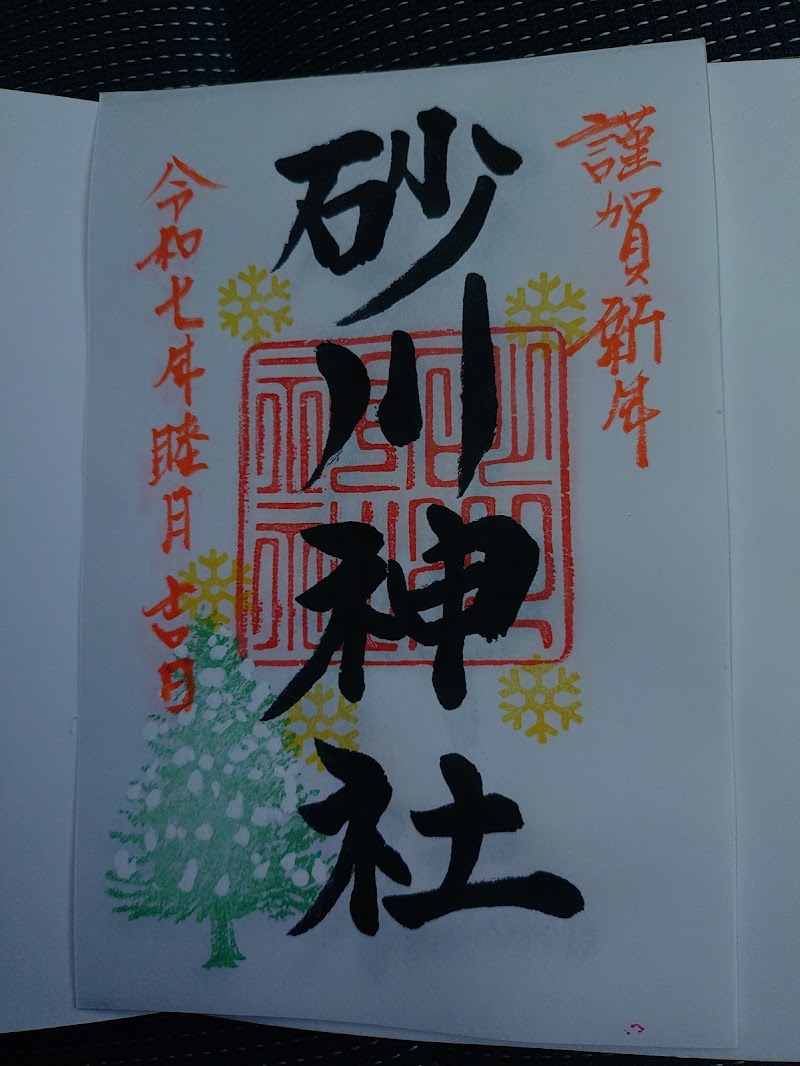 謹賀新年
砂川神社
令和七年睦月吉日